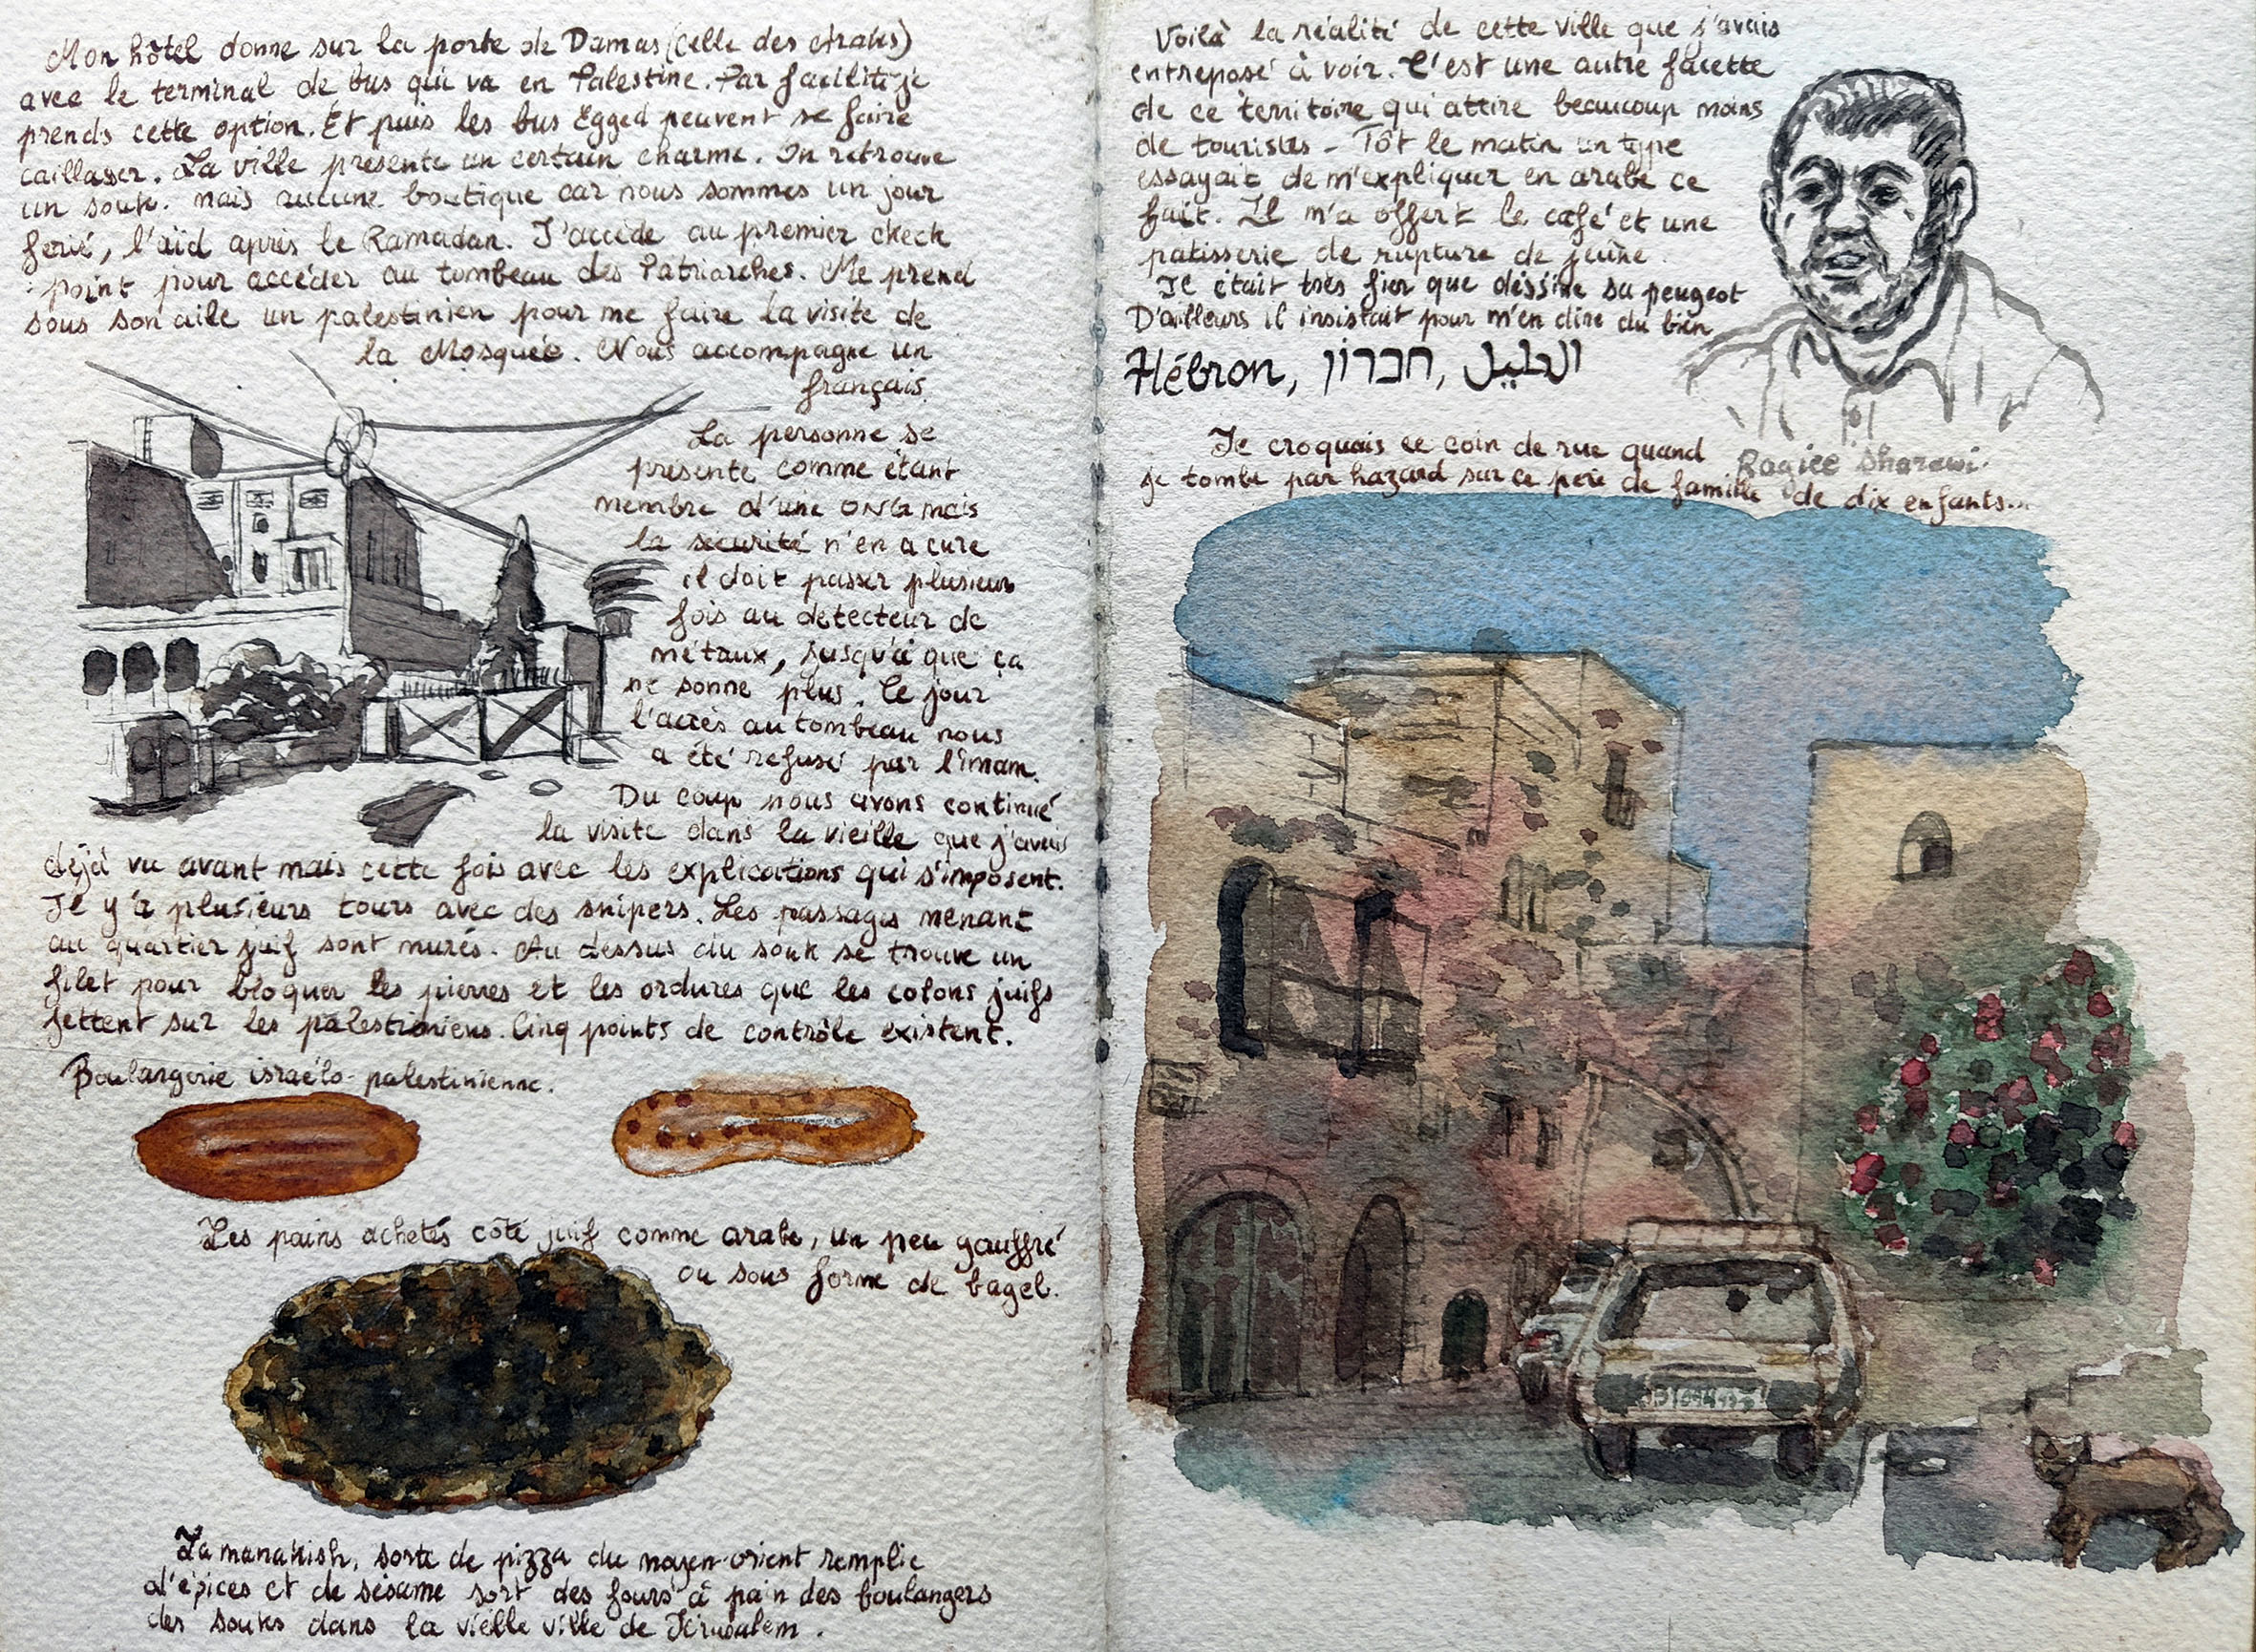 Mon hôtel donne sur la porte de Damas (celle des Arabes)
avec le terminal de bus qui va en Palestine. Par facilité je
prends cette option. Et puis les bus Egged peuvent se faire
caillasser. La ville présente un certain charme. On retrouve
un souk. mais aucune boutique car nous sommes un jour
ferié, l'aïd après le Ramadan. J'accède au premier check
point pour accéder au tombeau des Patriarches. Me prend
sous son aile un palestinien pour me faire la visite de
la Mosquée. Nous accompagne un
français.
La personne se
présente comme étant
membre d'une ONG mais
la sécurité n'en a cure
il doit passer plusieurs
fois au detecteur de
métaux, jusqu'à que ça
ne sonne plus. Ce jour
l'accès au tombeau nous
a été refusé par l'imam.
Du coup nous avons continué
la visite dans la vieille que j'avais
déjà vu avant mais cette fois avec les explications qui s'imposent.
Il y'a plusieurs tours avec des snipers. Les passages menant
au quartier juif sont murés. Au dessus du souk se trouve un
filet pour bloquer les pierres et les ordures que les colons juifs
jettent sur les palestiniens. Cinq points de contrôle existent.
Boulangerie israélo-palestinienne.
Les pains achetés côté juif comme arabe, un peu gauffré
ou sous forme de bagel.
La manakish, sorte de pizza du moyen-orient remplie
d'épices et de sésame sort des fours à pain des boulangers
des souks dans la vielle ville de Jérusalem.
Voilà la réalité de cette ville que j'avais
entreposé à voir. C'est une autre facette
de ce territoire qui attire beaucoup moins
de touristes - Tôt le matin un type
essayait de m'expliquer en arabe ce
fait. Il m'a offert le café et une
patisserie de rupture de jeûne.
Il était très fier que dessine sa peugeot
D'ailleurs il insistait pour m'en dire du bien
Hébron, חברון, الخليل
Je croquais ce coin de rue quand
je tombe par hazard sur ce père de famille de dix enfants...
Ragiée Sharawi.